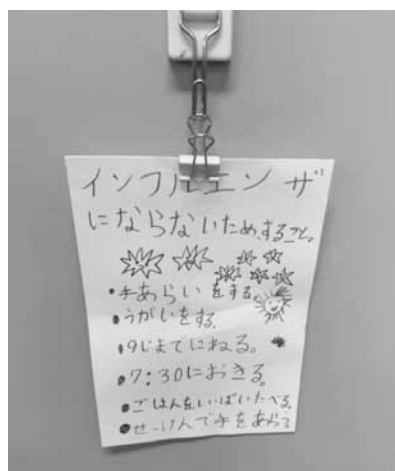 インフルエンザ
にならないため、すること。
・手あらいをする。
・うがいをする。
・9じまでにねる。
・7:30におきる。
・ごはんをいぱいたべる。
・せーけんで手をあらう